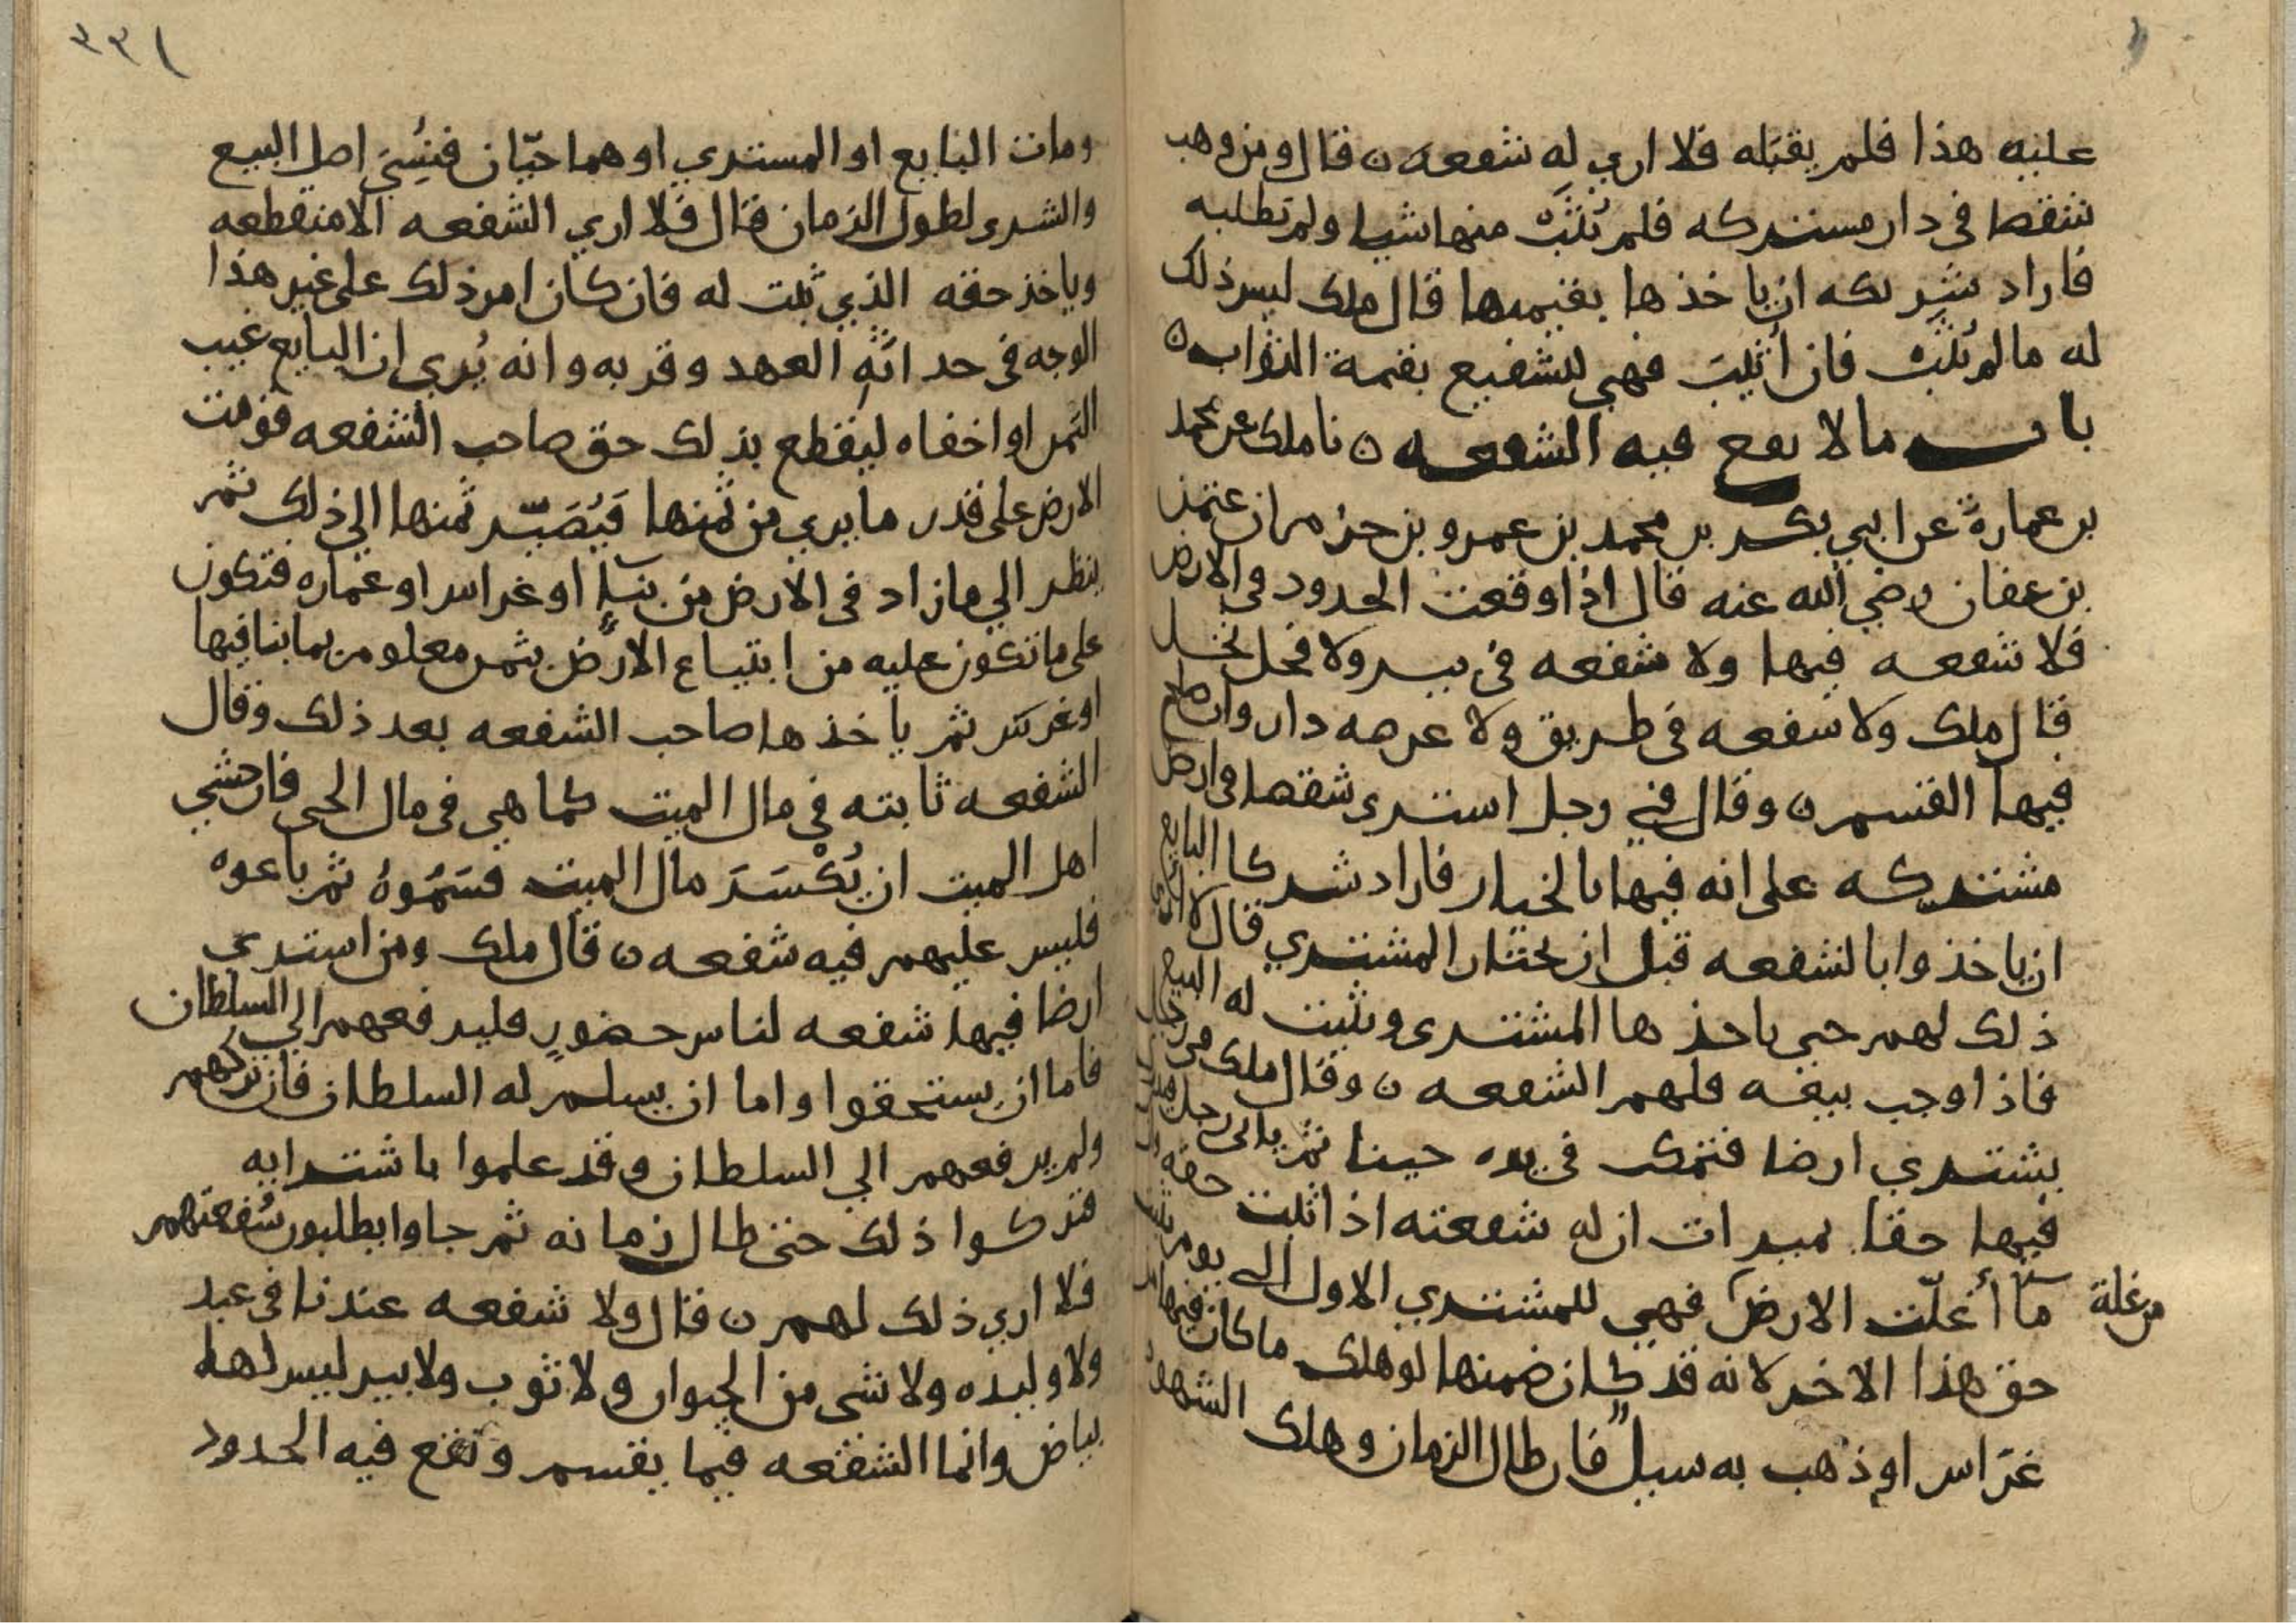 عليه هذا فلم يقبله فلا اري له شفعه ن قال ومن وهب
شقصا في دار مستركه فلم يُثَبْ منها شيا ولم يطلبه
فاراد شريكه ان ياخذها بقيمتها قال ملك ليس ذلك
له ما لم يُثَبْ فان أُثيبَ فهي للشفيع بقمة الثواب ن
باب ما لا يقع فيه الشفعه ن نا ملك عن محمد
بن عمارة عن ابي بكر بن محمد بن عمرو بن حزم ان عثمن
بن عفان رضي الله عنه قال اذا وقعت الحدود في الارض
فلا شفعه فيها ولا شفعه في بير ولا فحل نخل
قال ملك ولا شفعه في طريق ولا عرصه دار وان صلح
فيها القسم ن وقال في رجل استرى شقصا في ارض
مشتركه على انه فيها بالخيار فاراد شركا البايع
ان ياخذوا بالشفعه قبل ان يختار المشتري قال لا ارى
ذلك لهم حتى ياخذها المشترى ويثبت له البيع
فاذا وجب بيعه فلهم الشفعه ن وقال ملك في رجل
يشتري ارضا فتمكث في يده حينا ثم ياتي رجل
فيها حقا بميراث ان له شفعته اذا ثبت حقه
ما أغلّت الارض فهي للمشتري الاول الى يوم يثبت
من غلة
حق هذا الاخر لانه قد كان ضمنها لو هلك ما كان فيها
غرّاس او ذهب به سيلٌ فان طال الزمان وهلك الشهود
٢٢١
ومات البايع او المستري او هما حيّان فنُسِيَ اصل البيع
والشرى لطول الزمان قال فلا اري الشفعه الا منقطعه
وياخذ حقه الذي ثبت له فان كان امر ذلك على غير هذا
الوجه في حداثَةِ العهد وقربه وانه يُري ان البايع غيب
الثمن او اخفاه ليقطع بذلك حق صاحب الشفعه قومت
الارض على قدر ما يري من ثمنها فَيُصَيّر ثمنها الي ذلك ثم
ينظر الي ما زاد في الارض من بنآءٍ او غراس او عماره فتكون
على ما تكون عليه من ابتياع الارض بثمن معلوم ثم بنا فيها
او غرس ثم ياخذها صاحب الشفعه بعد ذلك وقال
الشفعه ثابته في مال الميت كما هي في مال الحى فان خشي
اهل الميت ان يُكْسَرَ مال الميت قسَمُوهُ ثم باعوه
فليس عليهم فيه شفعه ن قال ملك ومن استرى
ارضا فيها شفعه لناس حضورٍ فليرفعهم الي السلطان
فاما ان يستحقوا واما ان يسلم له السلطان فان تركهم
ولم يرفعهم الي السلطان وقد علموا باشترايه
فتركوا ذلك حتى طال زمانه ثم جاوا يطلبون شُفعتهم
فلا اري ذلك لهم ن قال ولا شفعه عندنا في عبد
ولا وليده ولا شى من الحيوان ولا ثوب ولا بير ليس لها
بياض وانما الشفعه فيما يقسم وتقع فيه الحدود